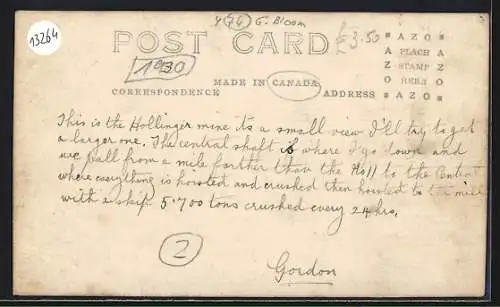 13264
G. Bloom
£3.50
POST CARD
AZO
PLACE
STAMP
HERE
AZO
1930
MADE IN CANADA
CORRESPONDENCE
ADDRESS
This is the Hollinger mine its a small view I'll try to get
a larger one. The central shaft is where I go down and
we pull from a mile farther than the Holl to the
where everything is hoisted and crushed then hoisted to the mill
with a skip 5.700 tons crushed every 24 hrs,
2
Gordon